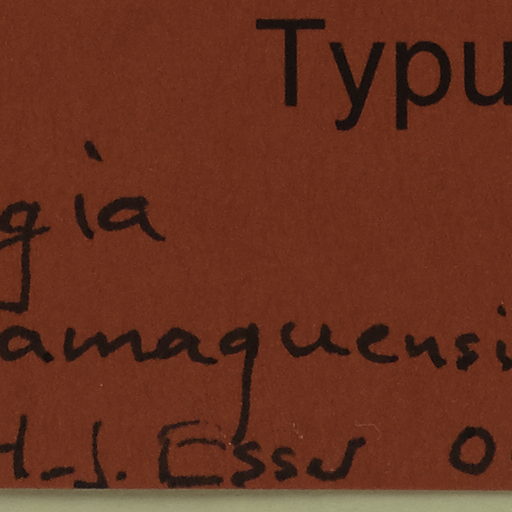 Typu
gia
amaquensi
H-J. Esser 0